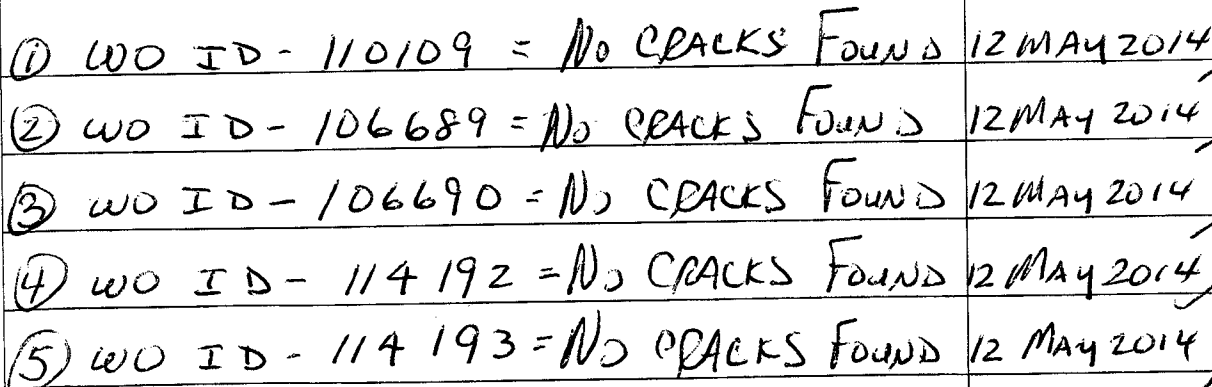 ① WO ID - 110109 = No CRACKS FOUND 12 MAY 2014
② WO ID - 106689 = No CRACKS FOUND 12 MAY 2014
③ WO ID - 106690 = No CRACKS FOUND 12 MAY 2014
④ WO ID - 114192 = No CRACKS FOUND 12 MAY 2014
⑤ WO ID - 114193 = No CRACKS FOUND 12 MAY 2014